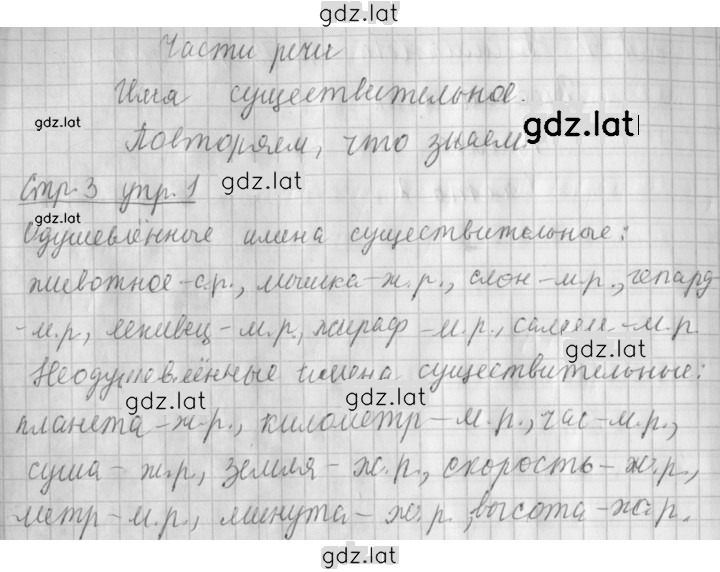 gdz.lat
Части речи
Имя существительное.
gdz.lat
Повторяем, что знаем.
gdz.lat
Стр. 3 упр. 1
gdz.lat
gdz.lat
Одушевлённые имена существительные:
животное - с.р., мышка - ж.р., слон - м.р., гепард
- м.р., ленивец - м.р., жираф - м.р., - м.р.
gdz.lat
Неодушевлённые имена существительные:
gdz.lat
gdz.lat
планета - ж.р., километр - м.р., час - м.р.,
суша - ж.р., земля - ж.р., скорость - ж.р.,
метр - м.р., минута - ж.р., высота - ж.р.
gdz.lat